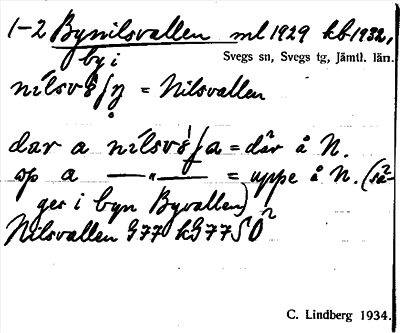 1-2 Bynilsvallen ml 1929 kb 1932,
by i
Svegs sn, Svegs tg, Jämtl. län.
= Nilsvallen
dar a = där å N.
op a —"— = uppe å N. (sä-
ger i byn Byvallen)
Nilsvallen G77 kG77SÖ
C. Lindberg 1934.